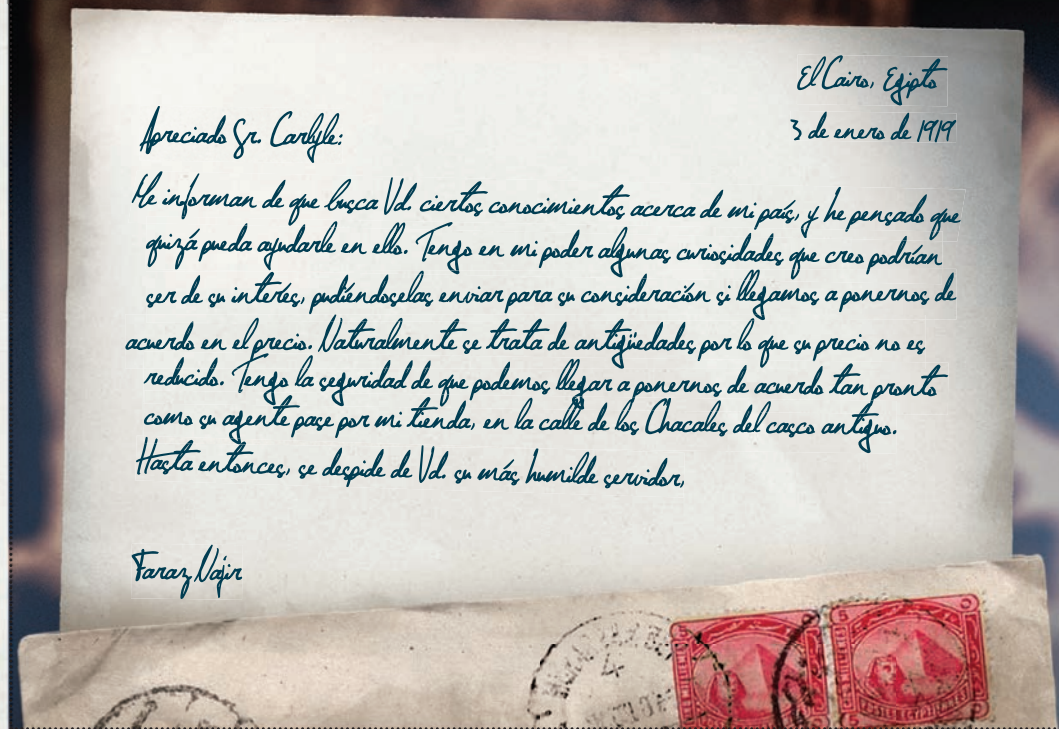 El Cairo, Egipto
3 de enero de 1919
Apreciado Sr. Carlyle:
Me informan de que busca Vd. ciertos conocimientos acerca de mi país, y he pensado que
quizá pueda ayudarle en ello. Tengo en mi poder algunas curiosidades que creo podrían
ser de su interés, pudiéndoselas enviar para su consideración si llegamos a ponernos de
acuerdo en el precio. Naturalmente se trata de antigüedades por lo que su precio no es
reducido. Tengo la seguridad de que podemos llegar a ponernos de acuerdo tan pronto
como su agente pase por mi tienda, en la calle de los Chacales del casco antiguo.
Hasta entonces, se despide de Vd. su más humilde servidor,
Faraz Najir
5 5
5 5
POSTES EGYPTIENNES